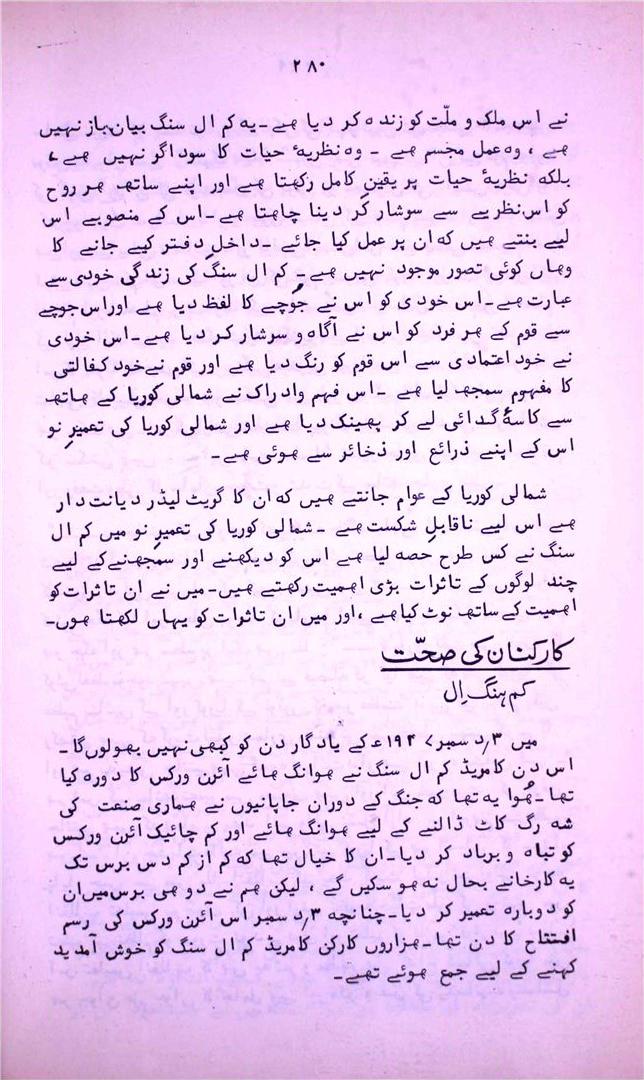 ۲۸۰
نے اس ملک و ملّت کو زندہ کر دیا ہے۔ یہ کم ال سنگ بیان باز نہیں
ہے، وہ عمل مجسم ہے ۔ وہ نظریۂ حیات کا سوداگر نہیں ہے،
بلکہ نظریۂ حیات پر یقینِ کامل رکھتا ہے اور اپنے ساتھ ہر روح
کو اس نظریے سے سرشار کر دینا چاہتا ہے۔ اس کے منصوبے اس
لیے بنتے ہیں کہ ان پر عمل کیا جائے ۔ داخلِ دفتر کیے جانے کا
وہاں کوئی تصور موجود نہیں ہے۔ کم ال سنگ کی زندگی خودی سے
عبارت ہے۔ اس خودی کو اس نے جُوچے کا لفظ دیا ہے اور اس جوچے
سے قوم کے ہر فرد کو اس نے آگاہ و سرشار کر دیا ہے۔ اس خودی
نے خود اعتمادی سے اس قوم کو رنگ دیا ہے اور قوم نے خود کفالتی
کا مفہوم سمجھ لیا ہے ۔ اس فہم و ادراک نے شمالی کوریا کے ہاتھ
سے کاسۂ گدائی لے کر پھینک دیا ہے اور شمالی کوریا کی تعمیرِ نو
اس کے اپنے ذرائع اور ذخائر سے ہوئی ہے۔
شمالی کوریا کے عوام جانتے ہیں کہ ان کا گریٹ لیڈر دیانت دار
ہے اس لیے ناقابلِ شکست ہے ۔ شمالی کوریا کی تعمیرِ نو میں کم ال
سنگ نے کس طرح حصہ لیا ہے اس کو دیکھنے اور سمجھنے کے لیے
چند لوگوں کے تاثرات بڑی اہمیت رکھتے ہیں۔ میں نے ان تاثرات کو
اہمیت کے ساتھ نوٹ کیا ہے، اور میں ان تاثرات کو یہاں لکھتا ہوں۔
کارکنان کی صحّت
کم ہنگ اِل
میں ۳؍دسمبر ۱۹۴۷ء کے یادگار دن کو کبھی نہیں بھولوں گا۔
اس دن کامریڈ کم ال سنگ نے ہوانگ ہائے آئرن ورکس کا دورہ کیا
تھا۔ ہُوا یہ تھا کہ جنگ کے دوران جاپانیوں نے ہماری صنعت کی
شہ رگ کاٹ ڈالنے کے لیے ہوانگ ہائے اور کم چائیک آئرن ورکس
کو تباہ و برباد کر دیا۔ ان کا خیال تھا کہ کم از کم دس برس تک
یہ کارخانے بحال نہ ہو سکیں گے ، لیکن ہم نے دو ہی برس میں ان
کو دوبارہ تعمیر کر دیا۔ چنانچہ ۳؍دسمبر اس آئرن ورکس کی رسم
افتتاح کا دن تھا۔ ہزاروں کارکن کامریڈ کم ال سنگ کو خوش آمدید
کہنے کے لیے جمع ہوئے تھے۔